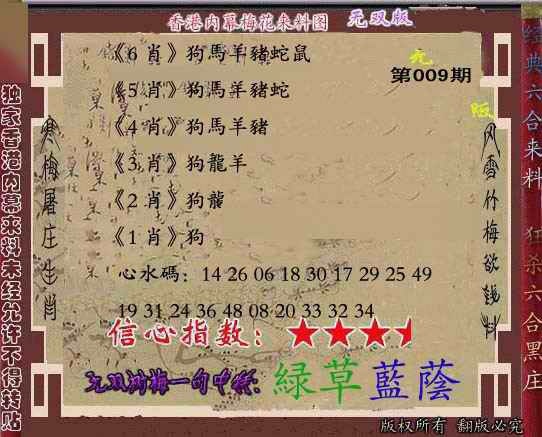 香港内幕梅花来料图 无双版
《6 肖》狗馬羊豬蛇鼠
《5 肖》狗馬羊豬蛇
《4 肖》狗馬羊豬
《3 肖》狗龍羊
《2 肖》狗龍
《1 肖》狗
心水碼：14 26 06 18 30 17 29 25 49
19 31 24 36 48 08 20 33 32 34
信心指数：
无双狗梅一句中特：綠草藍蔭
第009期
版权所有 翻版必究
独家香港内幕来料未经允许不得转贴
寒梅屠庄生肖
风雪竹梅欲钱料
经典六合来料
狂杀六合黑庄